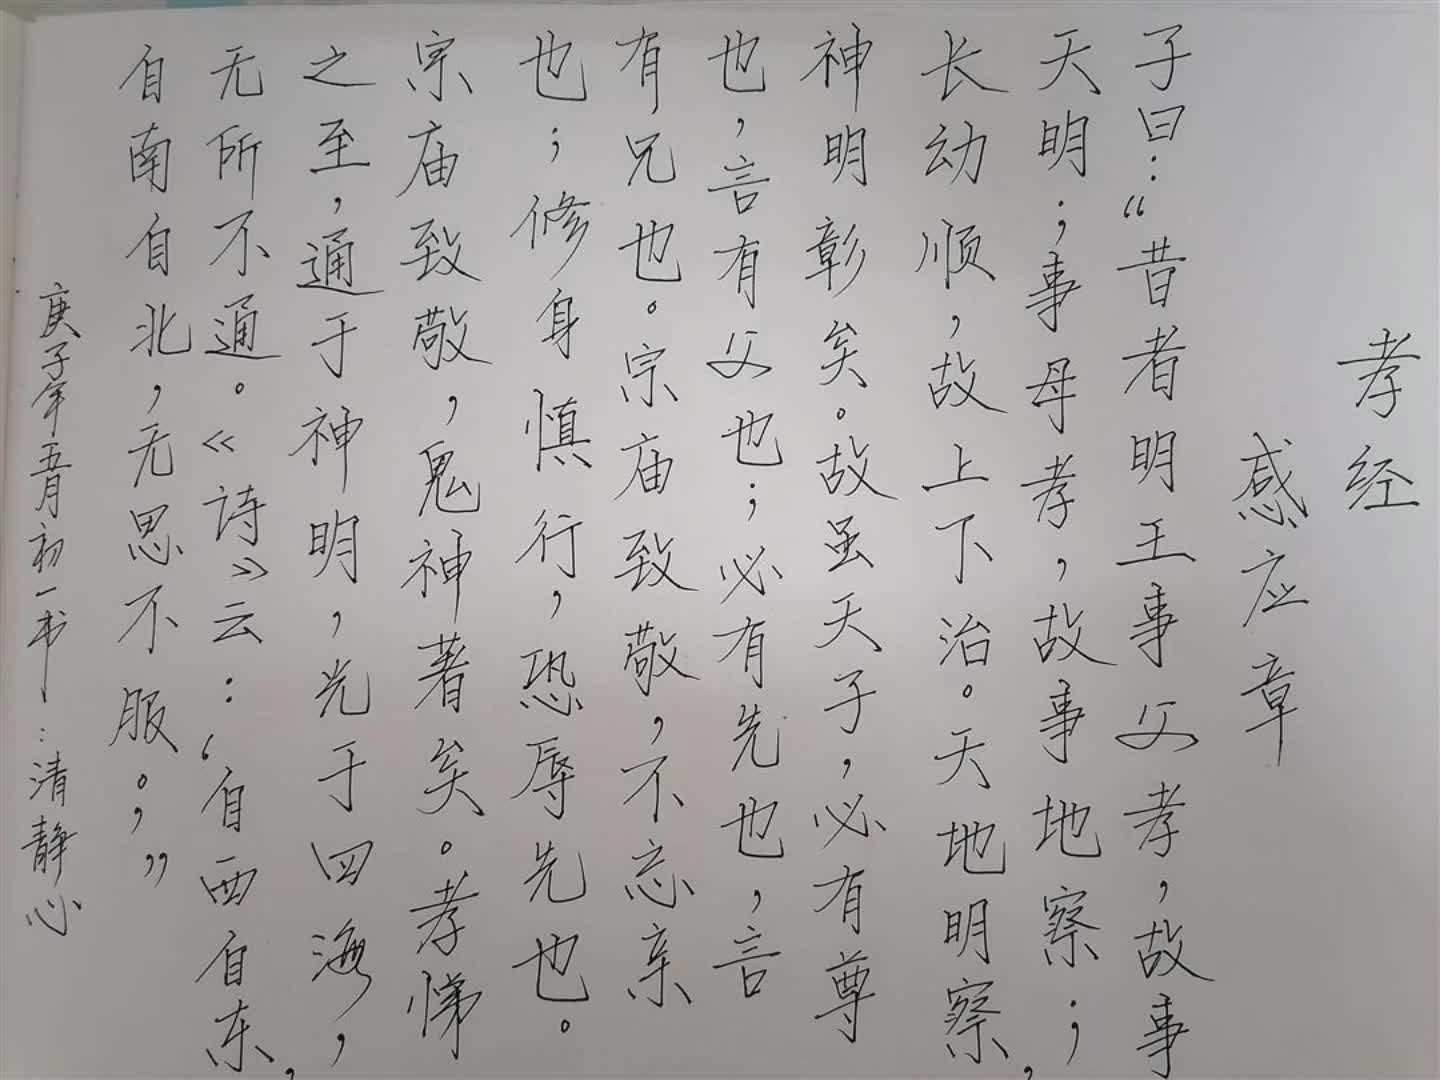 孝经
感应章
子曰：“昔者明王事父孝，故事
天明；事母孝，故事地察；
长幼顺，故上下治。天地明察，
神明彰矣。故虽天子，必有尊
也，言有父也；必有先也，言
有兄也。宗庙致敬，不忘亲
也；修身慎行，恐辱先也。
宗庙致敬，鬼神著矣。孝悌
之至，通于神明，光于四海，
无所不通。《诗》云：‘自西自东，
自南自北，无思不服。’”
庚子年五月初一书：清静心